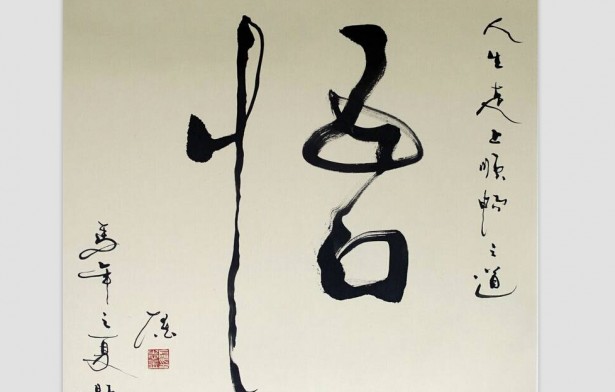 人生走上順暢之道
悟
馬年之夏